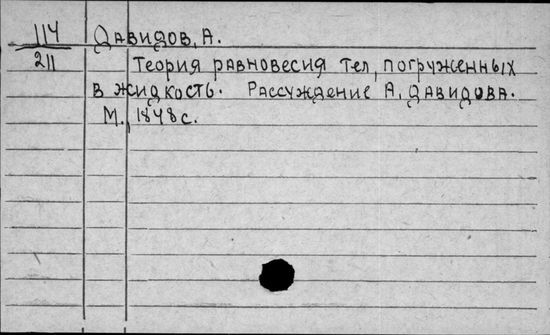 114 Давидов, А.
211 Теория равновесия тел, погруженных
в жидкость. Рассуждение А. Давидова.
М., 1848 с.